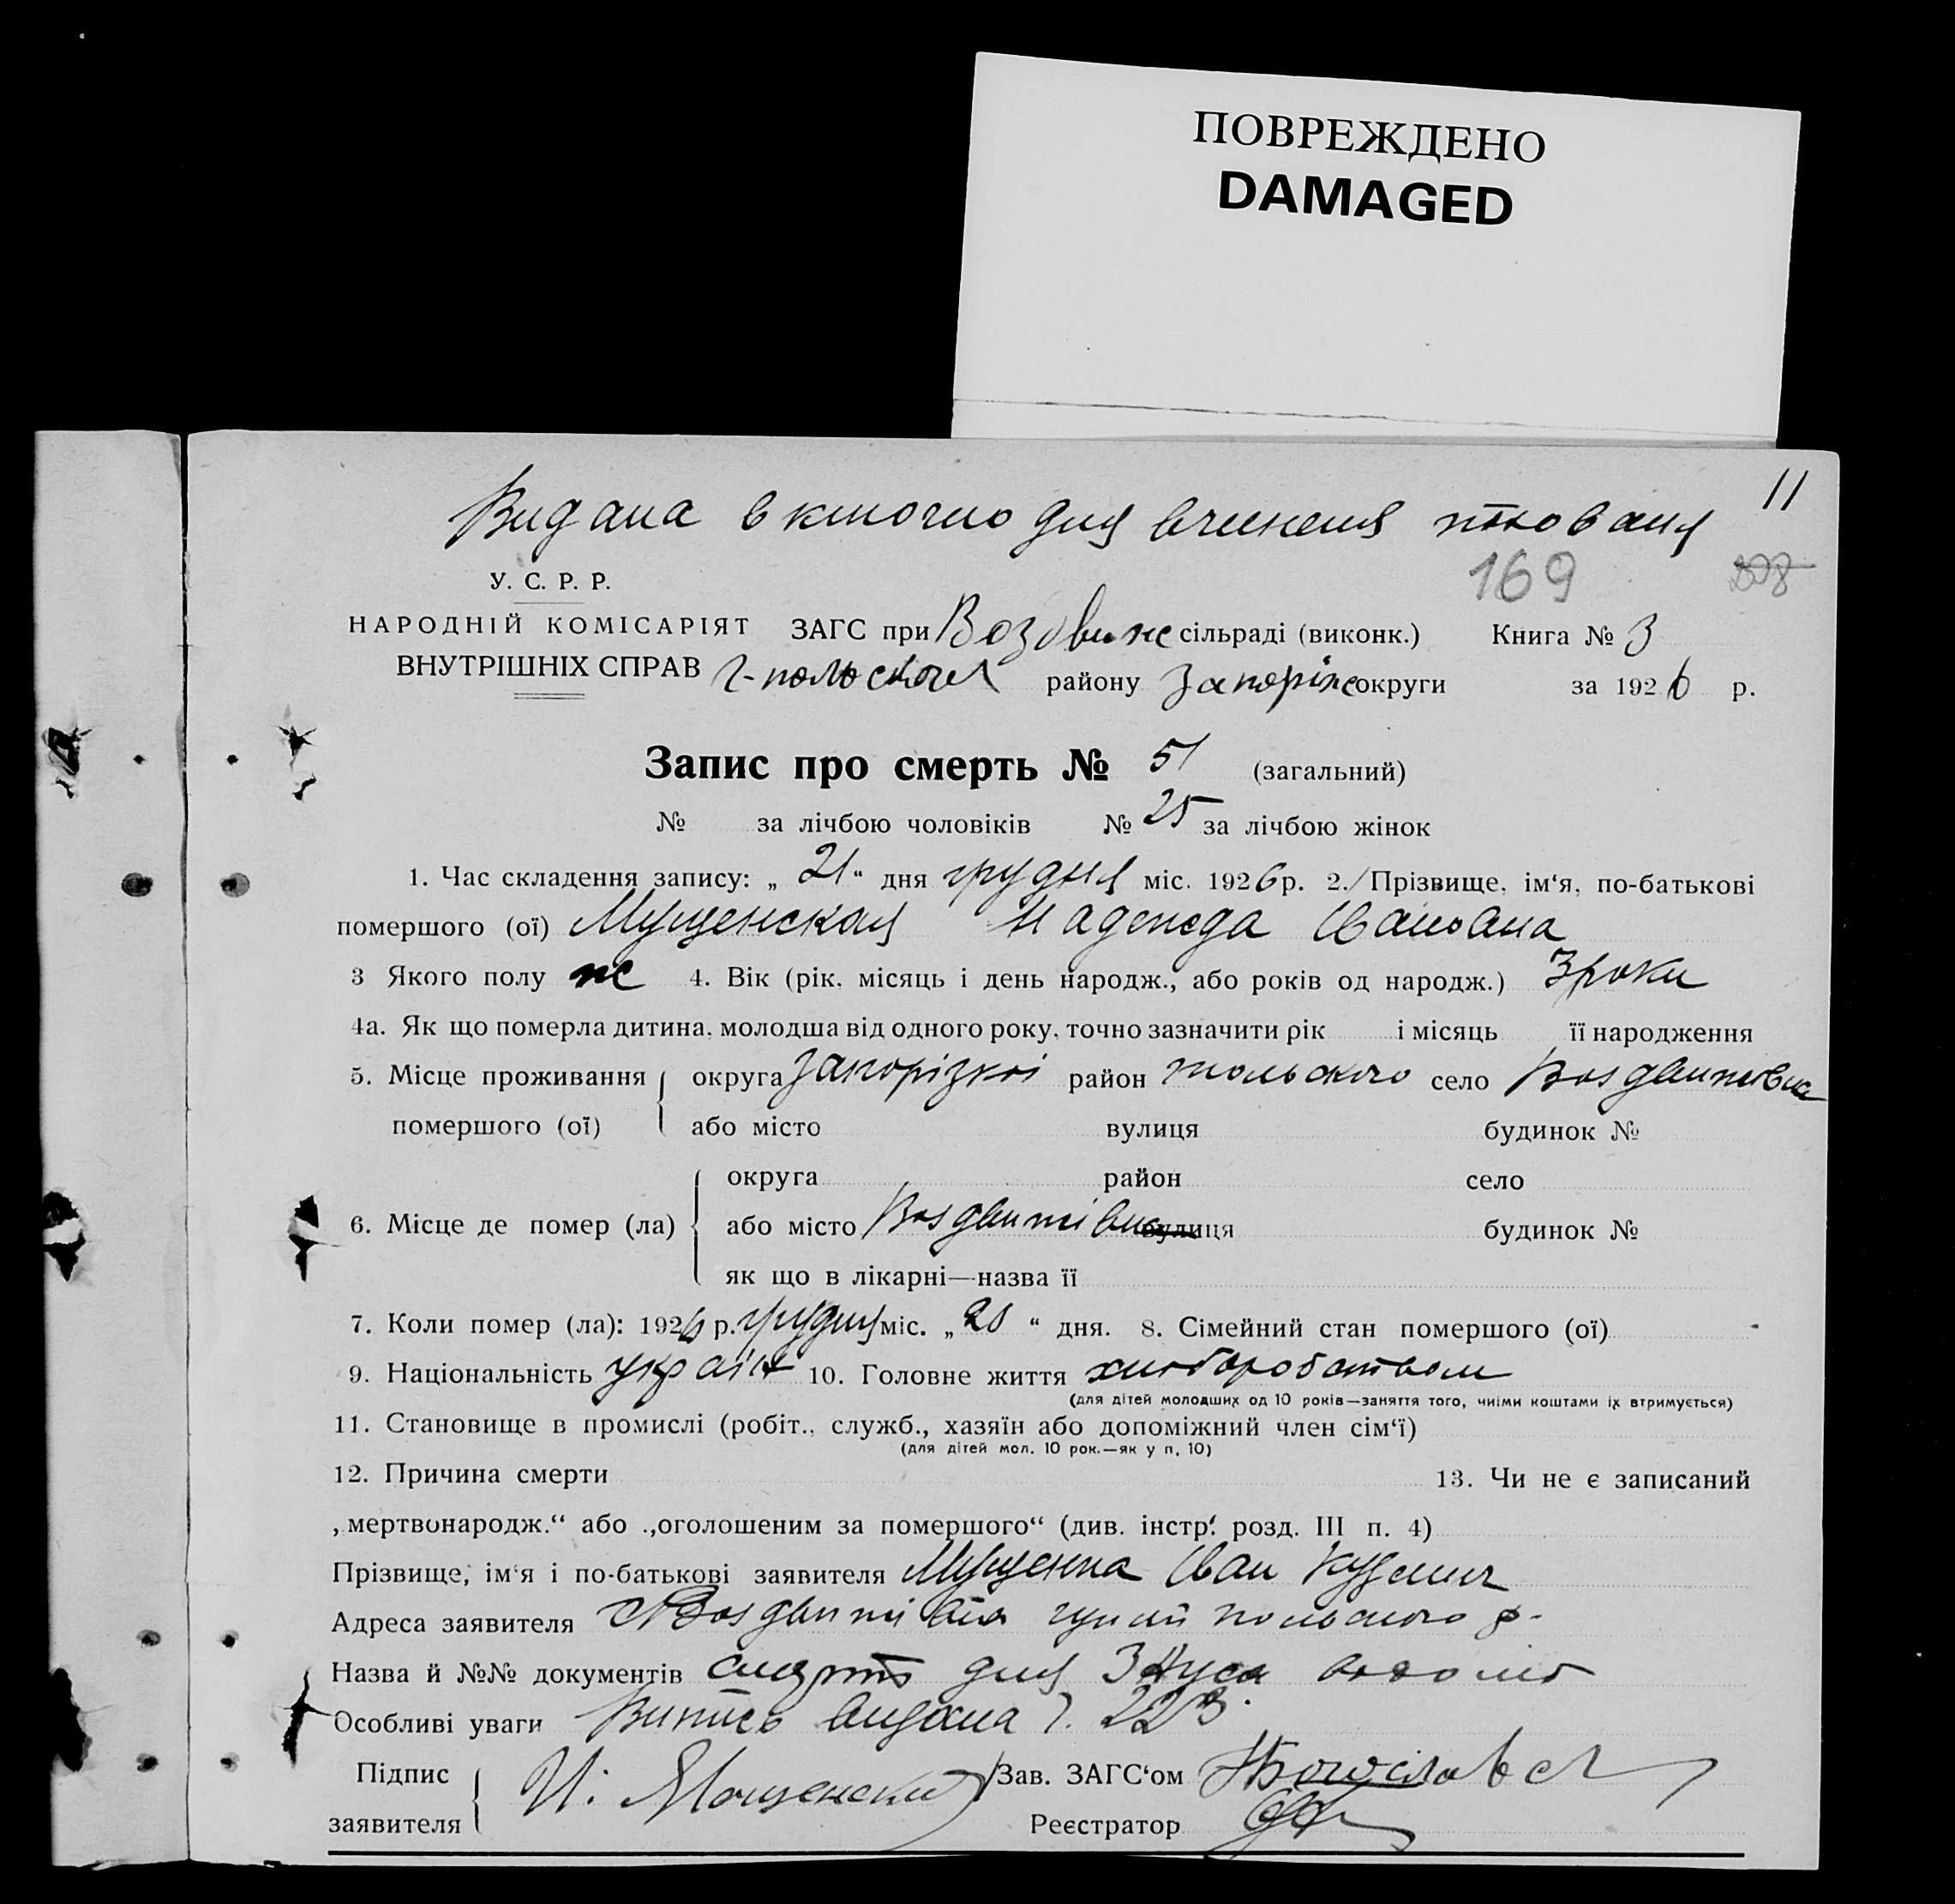 ПОВРЕЖДЕНО
DAMAGED
11
Видана
169
У. С. Р. Р.
НАРОДНІЙ КОМІСАРІЯТ ЗАГС при сільраді (виконк.) Книга № 3
ВНУТРІШНІХ СПРАВ району Запоріж округи за 1926 р.
Запис про смерть № 51 (загальний)
№ за лічбою чоловіків № 25 за лічбою жінок
1. Час складення запису: „ 21 “ дня грудня міс. 1926 р. 2. Прізвище, ім‘я, по-батькові
помершого (ої) Мущенская Надежда Івановна
3 Якого полу ж 4. Вік (рік, місяць і день народж., або років од народж.) 3 роки
4а. Як що померла дитина, молодша від одного року, точно зазначити рік і місяць її народження
5. Місце проживання округа Запорізкоі район польского село Воздвижівка
помершого (ої) або місто вулиця будинок №
округа район село
6. Місце де помер (ла) або місто Воздвижівка вулиця будинок №
як що в лікарні—назва її
7. Коли помер (ла): 1926 р. грудня міс. „ 20 “ дня. 8. Сімейний стан помершого (ої) -
9. Національність україн 10. Головне життя хліборобством
(для дітей молодших од 10 років—заняття того, чиїми коштами їх втримується)
11. Становище в промислі (робіт., служб., хазяїн або допоміжний член сім‘ї)
(для дітей мол. 10 рок.—як у п. 10)
12. Причина смерти 13. Чи не є записаний
„мертвонародж.“ або „оголошеним за помершого“ (див. інстр. розд. III п. 4)
Прізвище, ім‘я і по-батькові заявителя Іван
Адреса заявителя польского р-
Назва й №№ документів для
Особливі уваги Витпсь видана
Підпис И. Мощенский Зав. ЗАГС‘ом
заявителя Реєстратор